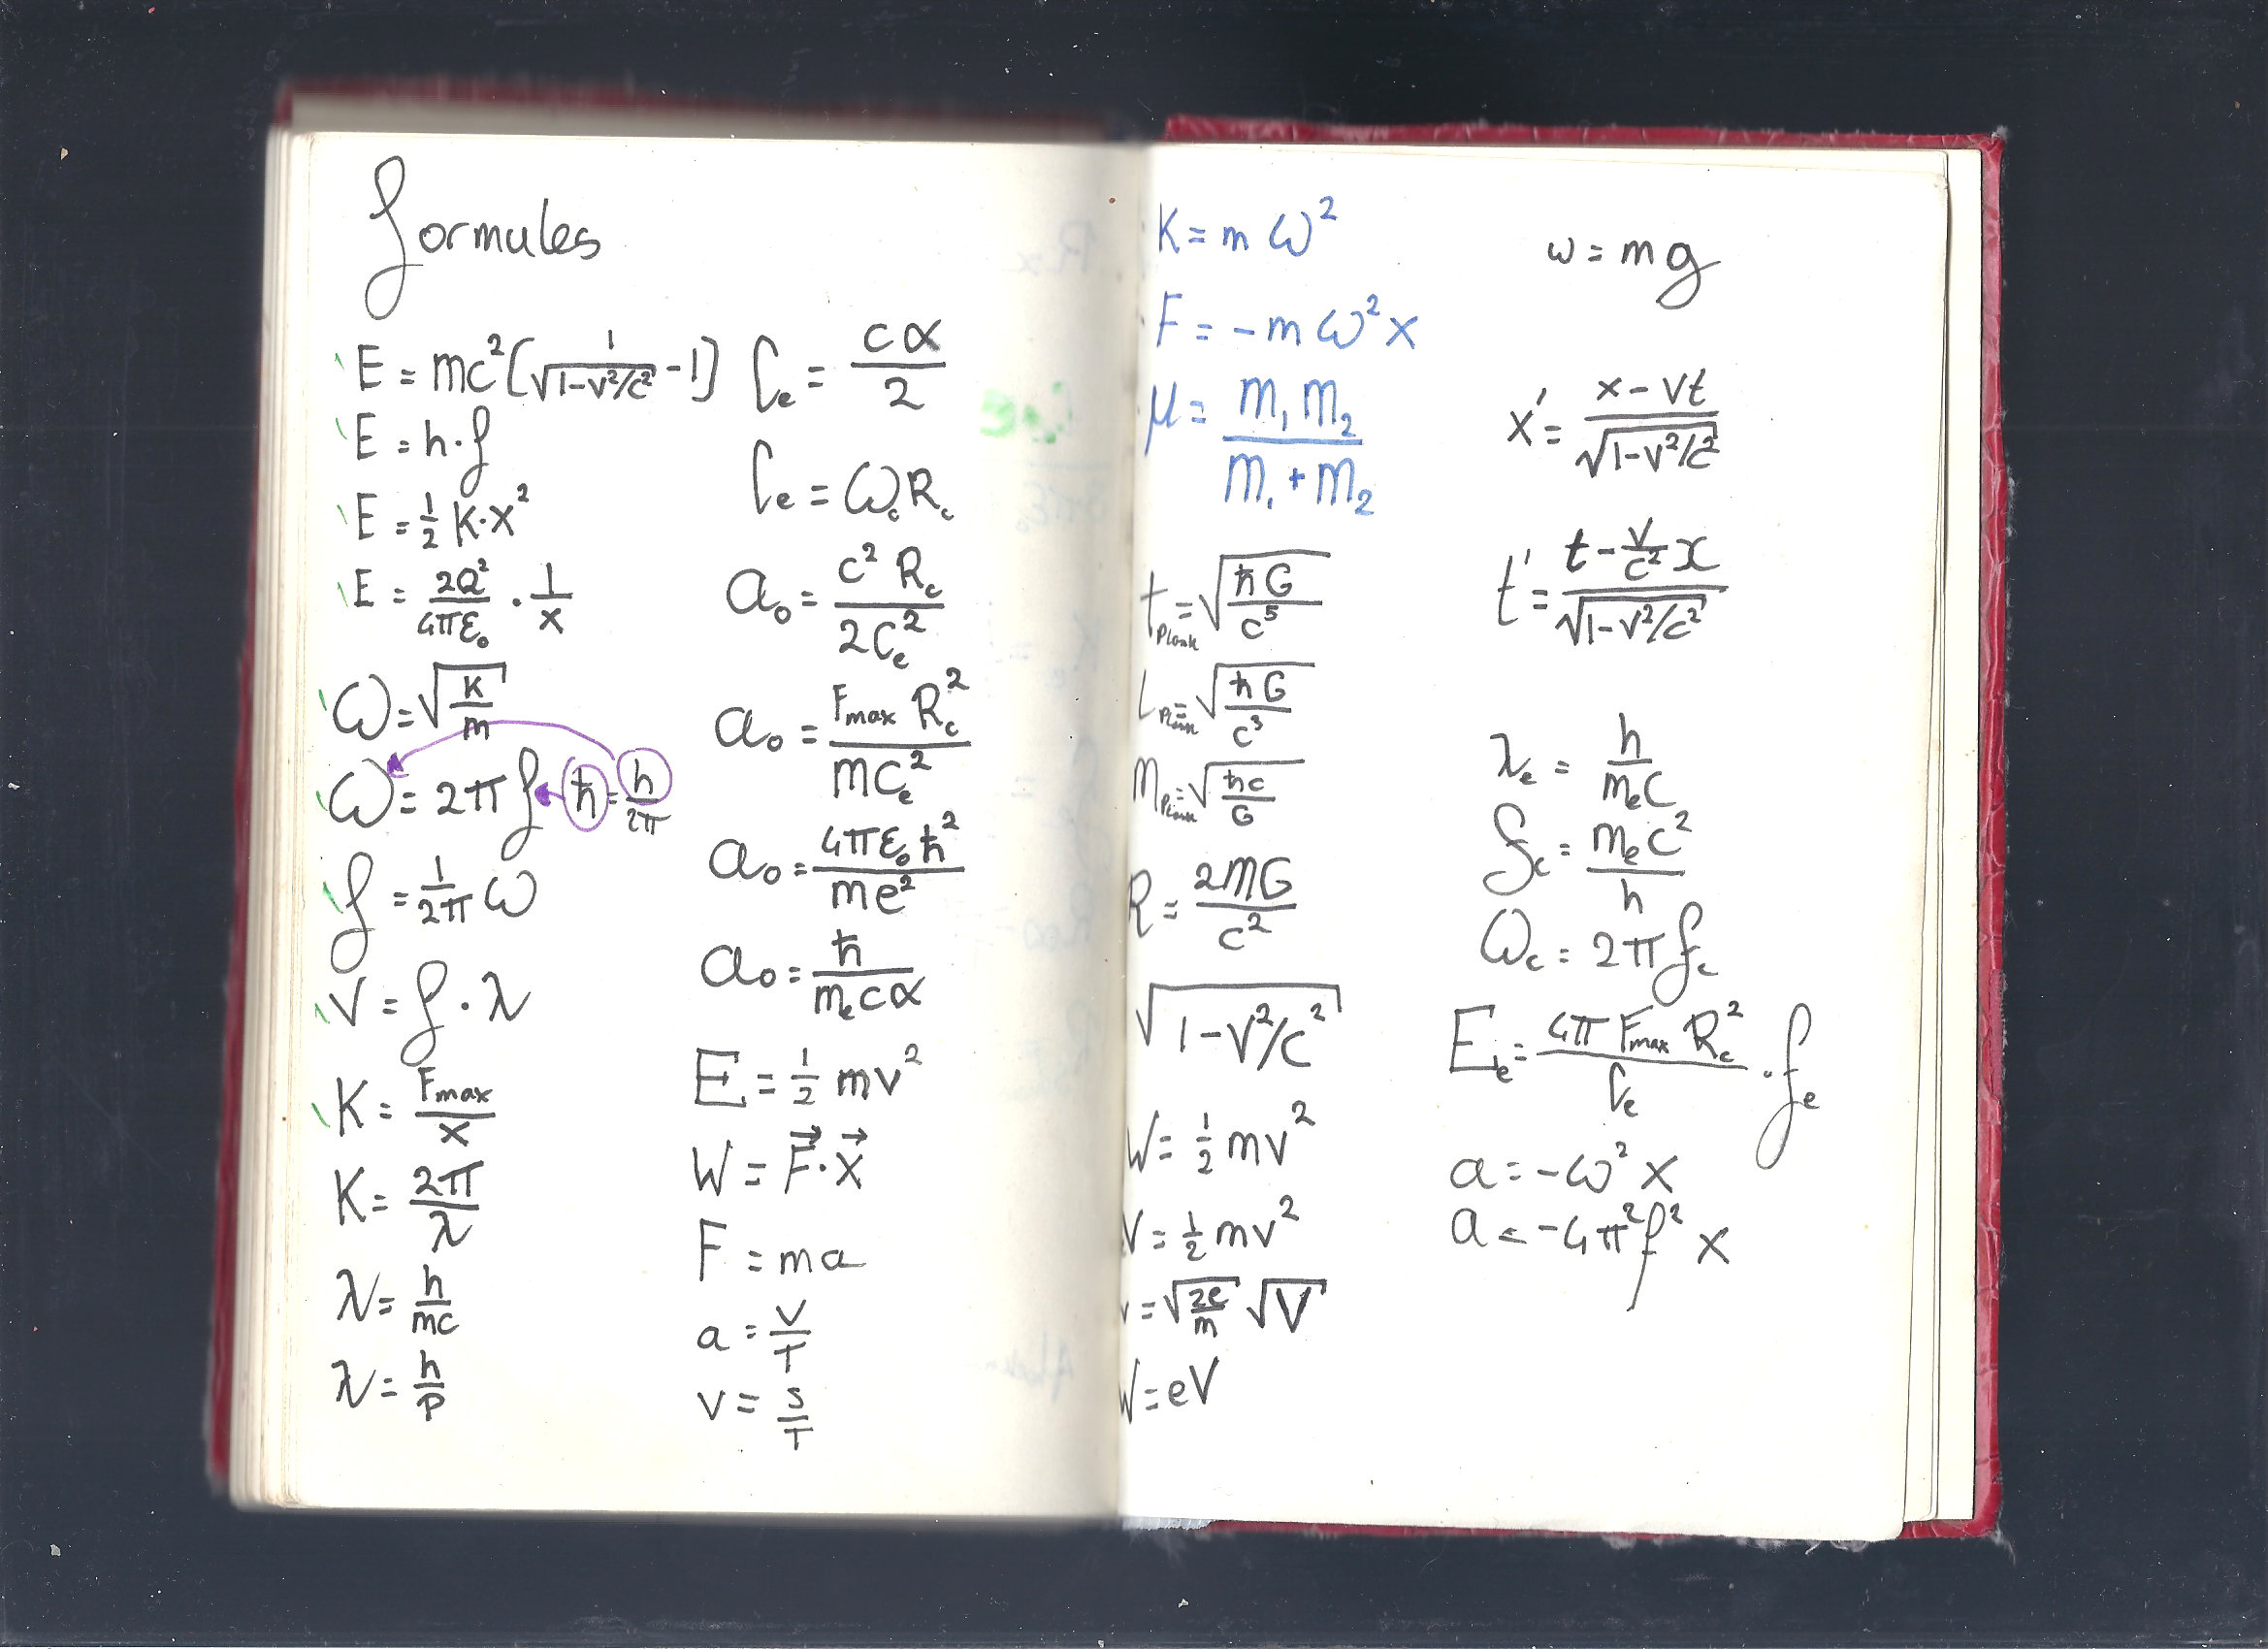 formules
E = mc²[1/√(1-v²/c²) -1]
E = h·f
E = ½ K·x²
E = 2Q²/4πε₀ · 1/x
ω = √(K/m)
ω = 2π f ħ = h/2π
f = 1/2π ω
V = f · λ
K = Fmax/x
K = 2π/λ
λ = h/mc
λ = h/p
Cₑ = cα/2
Cₑ = ω_c R_c
a₀ = c² R_c/2Cₑ²
a₀ = Fmax R_c²/mCₑ²
a₀ = 4πε₀ħ²/me²
a₀ = ħ/mₑcα
E = ½ mv²
W = F⃗·x⃗
F = ma
a = V/T
v = s/T
K = m ω²
F = -m ω² x
μ = m₁ m₂/m₁ + m₂
t_Plank = √(ħG/c⁵)
L_Plank = √(ħG/c³)
m_Plank = √(ħc/G)
R = 2mG/c²
√(1-V²/c²)
W = ½ mv²
V = ½ mv²
v = √(2e/m) √V
W = eV
w = mg
x' = x - vt/√(1-v²/c²)
t' = t - v/c² x/√(1-v²/c²)
λₑ = h/mₑc
f_c = mₑc²/h
ω_c = 2π f_c
Eₑ = 4π Fmax R_c²/Cₑ · fₑ
a = -ω² x
a = -4π²f² x